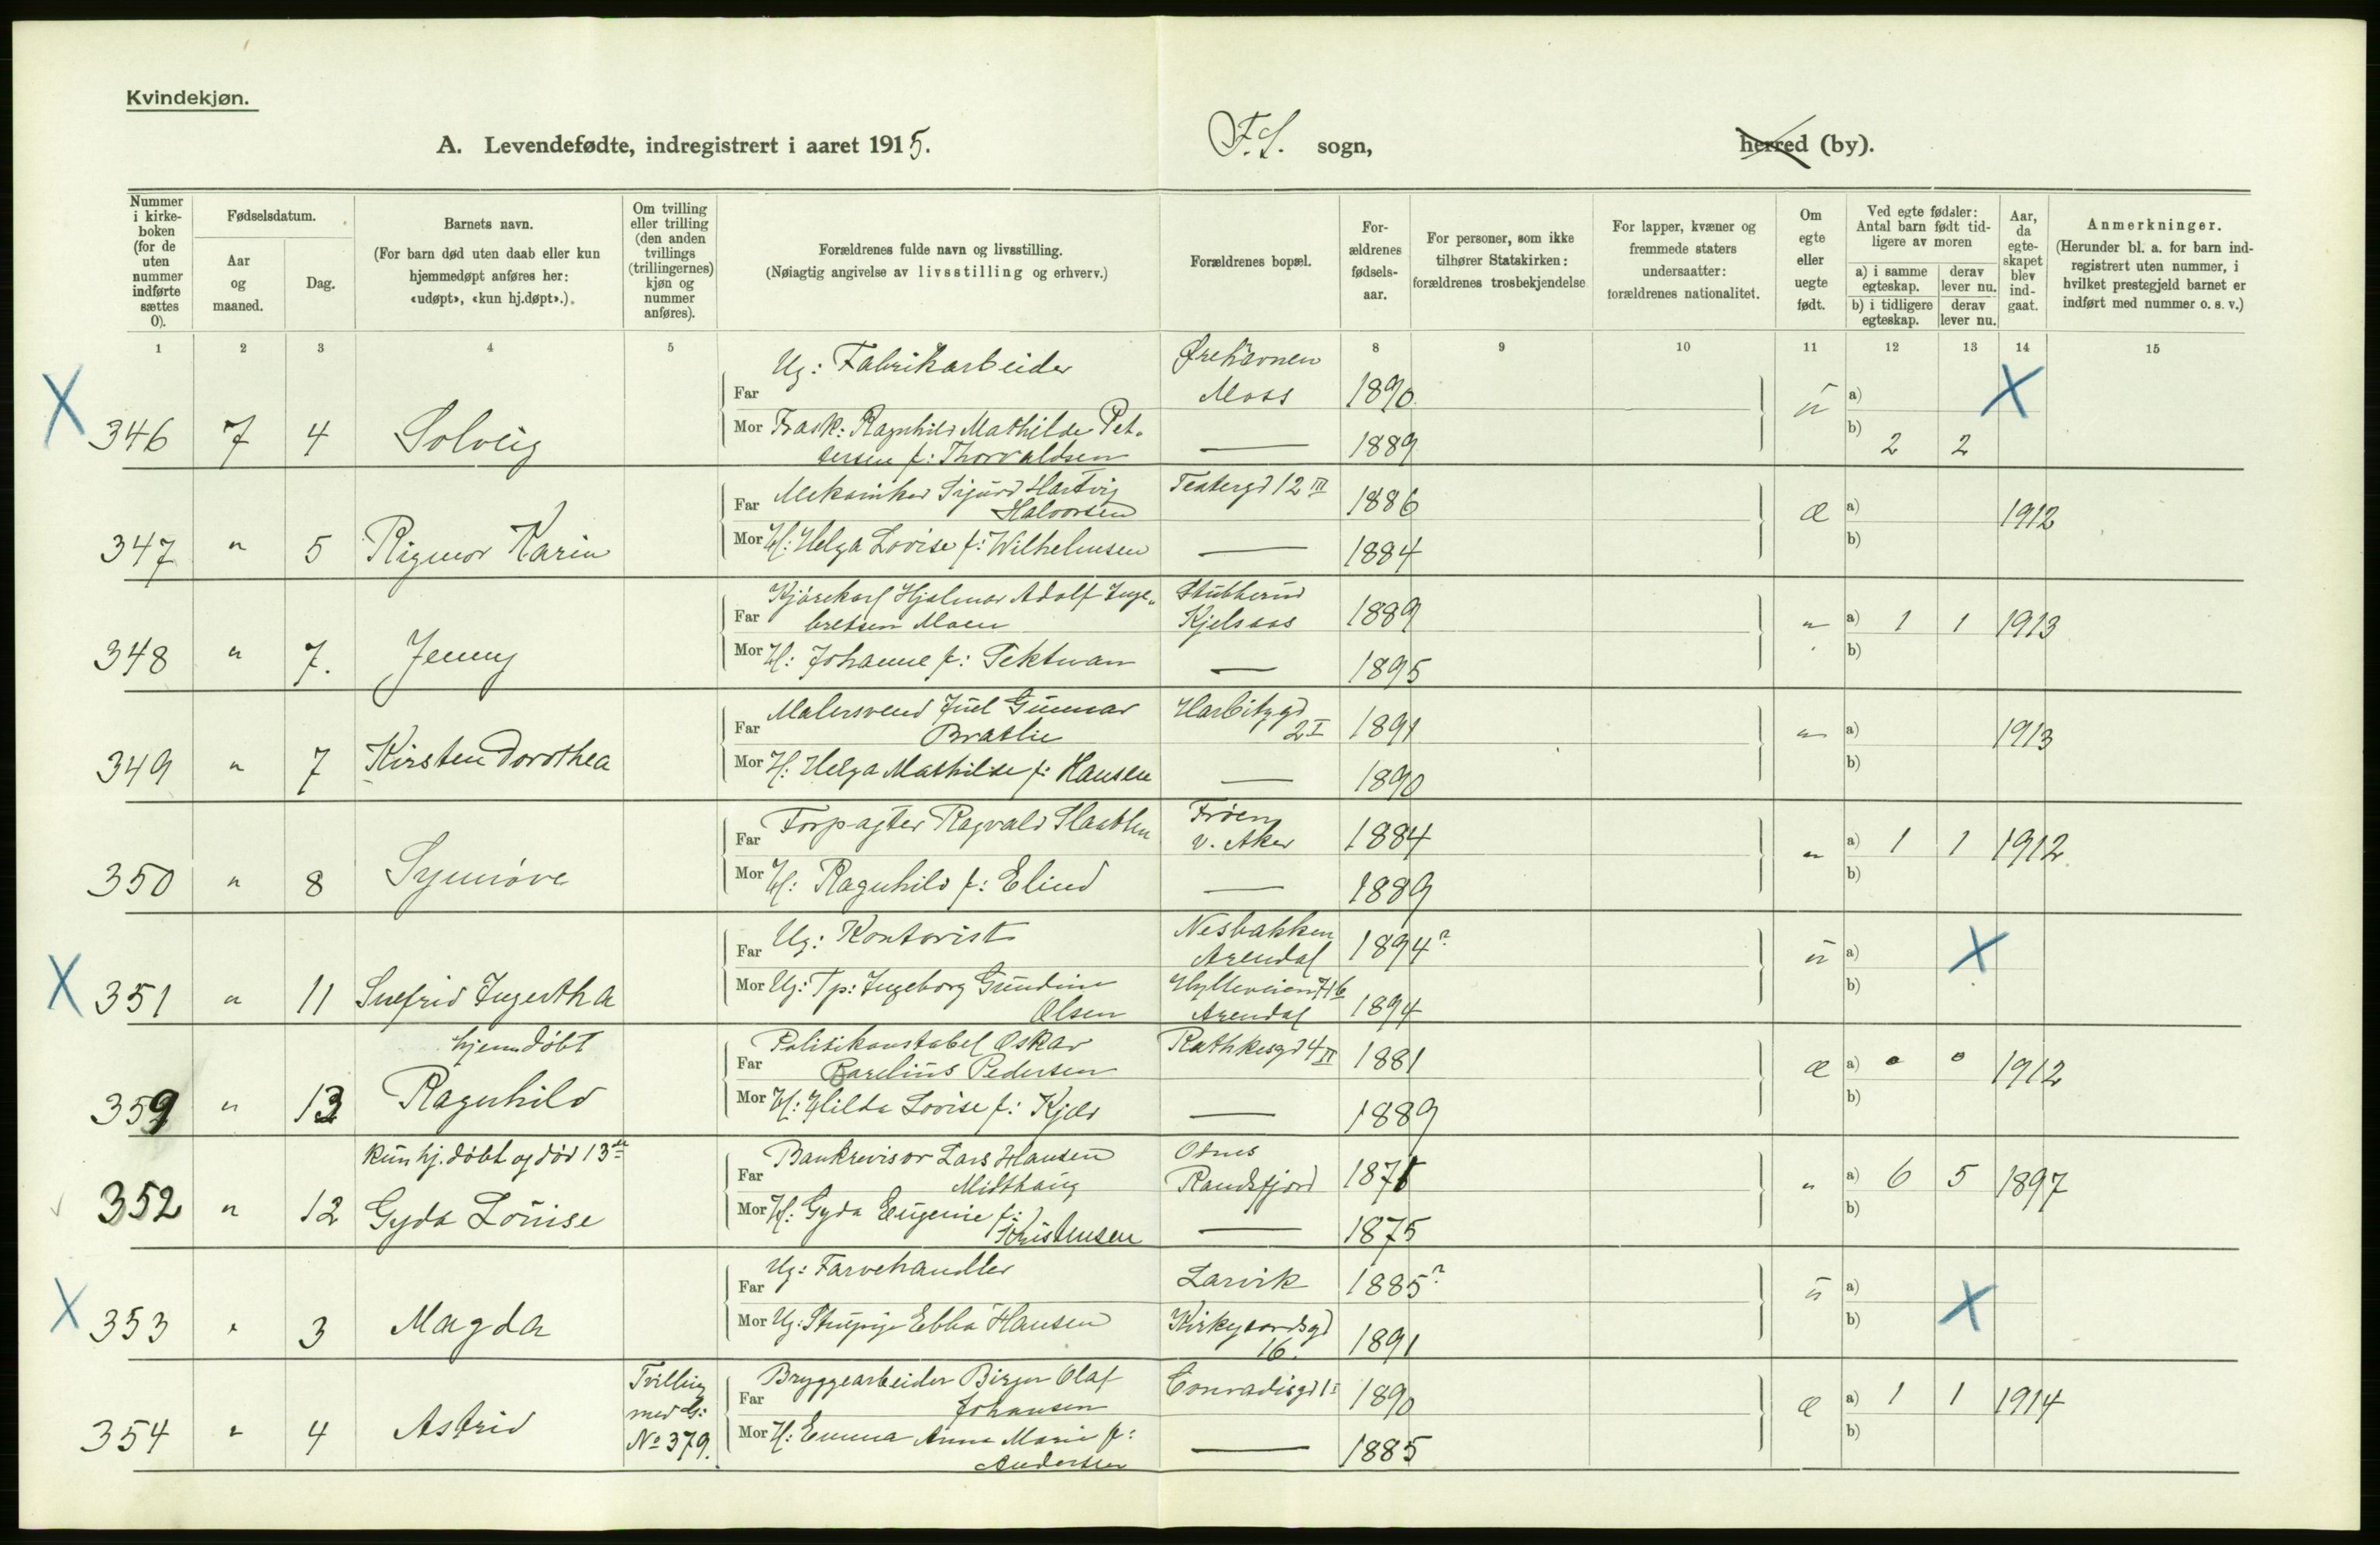 Kvindekjøn.
A. Levendefødte, indregistrert i aaret 1915.
F.S. sogn,
herred (by).
Nummer i kirke-boken (for de uten nummer indførte sættes 0).
Fødselsdatum.
Aar og maaned.
Dag.
Barnets navn.
(For barn død uten daab eller kun hjemmedøpt anføres her: «udøpt», «kun hj.døpt».).
Om tvilling eller trilling (den anden tvillings (trillingernes) kjøn og nummer anføres).
Forældrenes fulde navn og livsstilling.
(Nøiagtig angivelse av livsstilling og erhverv.)
Forældrenes bopæl.
For-ældrenes fødsels-aar.
For personer, som ikke tilhører Statskirken: forældrenes trosbekjendelse
For lapper, kvæner og fremmede staters undersaatter: forældrenes nationalitet.
Om egte eller uegte født.
Ved egte fødsler: Antal barn født tid-ligere av moren
a) i samme egteskap.
derav lever nu.
b) i tidligere egteskap.
derav lever nu.
Aar, da egte-skapet blev ind-gaat.
Anmerkninger.
(Herunder bl. a. for barn ind-registrert uten nummer, i hvilket prestegjeld barnet er indført med nummer o. s. v.)
1 2 3 4 5 8 9 10 11 12 13 14 15
X 346 7 4 Solveig
Far Ug: Fabrikarbeider Ørehavnen Moss 1890 ü a) X
Mor Frask: Ragnhild Mathilde Pet-
tersen f: Thorvaldsen — 1889 b) 2 2
347 " 5 Rigmor Karin
Far Mekaniker Sigurd Hartvig
Halvorsen Teatergd 12 III 1886 æ a) 1912
Mor H: Helga Lovise f: Wilhelmsen — 1884 b)
348 " 7. Jenny
Far Kjørekarl Hjalmar Adolf Inge-
bretsen Moen Stubberud Kjelsaas 1889 " a) 1 1 1913
Mor H: Johanne f: Tektman — 1895 b)
349 " 7 Kirsten Dorothea
Far Malersvend Juel Gunnar
Bratlie Harbitzgd 2 I 1891 " a) 1913
Mor H: Helga Mathilde f: Hansen — 1890 b)
350 " 8 Synnøve
Far Forpagter Ragvald Slaatten Frøen v. Aker 1884 " a) 1 1 1912
Mor H: Ragnhild f: Elind — 1889 b)
X 351 " 11 Snefrid Ingertha
Far Ug: Kontorist Nesbakken Arendal 1894? ü a) X
Mor Ug: Tp: Ingeborg Gundine
Olsen Hylleveien 716 Arendal 1894 b)
hjemdøbt
359 " 13 Ragnhild
Far Politikonstabel Oskar
Barelius Pedersen Rathkesgd 4 II 1881 æ a) 0 0 1912
Mor H: Hilda Lovise f: Kjær — 1889 b)
kun hj. døbt og død 13de
352 " 12 Gyda Louise
Far Bankrevisor Lars Hansen
Midthaug Osnes Randsfjord 1871 " a) 6 5 1897
Mor H: Gyda Eugenie f:
Christensen — 1875 b)
X 353 " 3 Magda
Far Ug: Farvehandler Larvik 1885? ü a) X
Mor Ug: Strupige Ebba Hansen Kirkegaardsgd 16. 1891 b)
354 " 4 Astrid
Tvilling med G: No 379.
Far Bryggearbeider Birger Olaf
Johansen Conradisgd 1 I 1890 æ a) 1 1 1914
Mor H: Emma Anna Marie f:
Andersen — 1885 b)